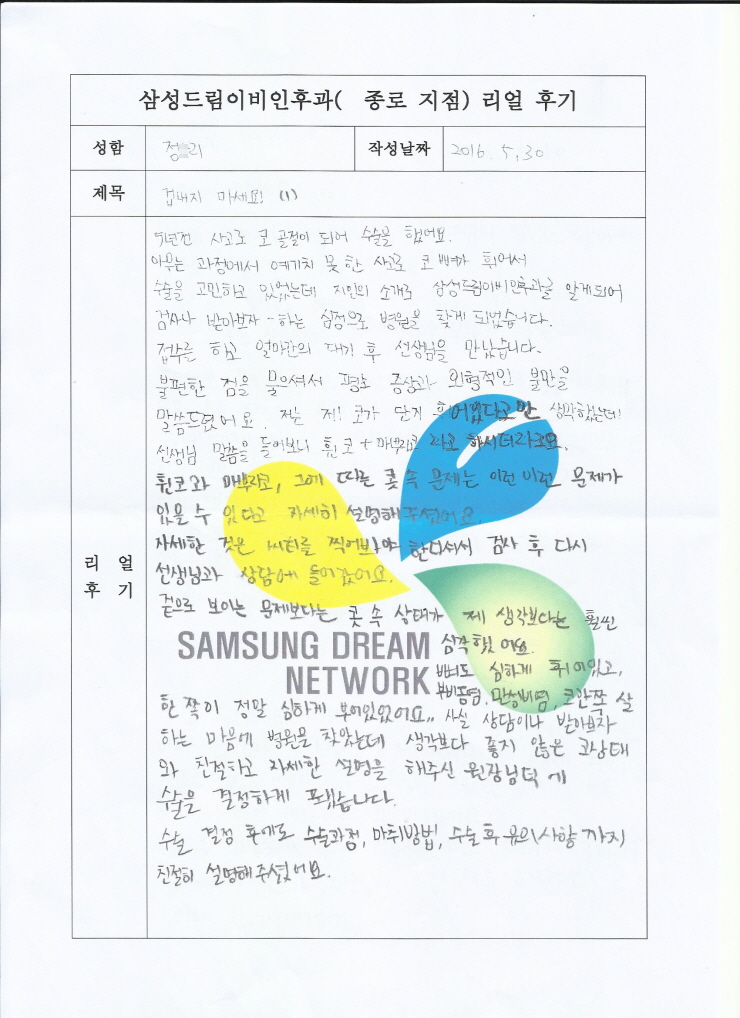 삼성드림이비인후과( 종로 지점) 리얼 후기
성함 정 리 작성날짜 2016. 5, 30
제목 겁내지 마세요! (1)
리 얼
후 기
사고로 코 골절이 되어 수술을 했어요.
아무는 과정에서 예기치 못한 사고로 코 뼈가 휘어서
수술을 고민하고 있었는데 지인의 소개로 삼성드림이비인후과를 알게되어
검사나 받아보자 - 하는 심정으로 병원을 찾게 되었습니다.
접수를 하고 얼마간의 대기 후 선생님을 만났습니다.
불편한 점을 물으셔서 평소 증상과 외형적인 불만을
말씀드렸어요. 저는 제 코가 단지 휘어있다고만 생각했는데!
선생님 말씀을 들어보니 휜 코 + 매부리코 라고 하시더라고요.
휜코와 매부리코, 그에 따른 콧 속 문제는 이런 이런 문제가
있을 수 있다고 자세히 설명해주셨어요.
자세한 것은 씨티를 찍어봐야 한다셔서 검사 후 다시
선생님과 상담에 들어갔어요.
겉으로 보이는 문제보다는 콧 속 상태가 제 생각보다는 훨씬
심각했어요.
SAMSUNG DREAM
NETWORK
뼈도 심하게 휘어있고,
부비동염, 만성비염, 코안쪽 살
한 쪽이 정말 심하게 부어있었어요.. 사실 상담이나 받아보자
하는 마음에 병원을 찾았는데 생각보다 좋지 않은 코상태
와 친절하고 자세한 설명을 해주신 원장님덕에
수술을 결정하게 됐습니다.
수술 결정 후에도 수술과정, 마취방법, 수술 후 유의사항 까지
친절히 설명해주셨어요.